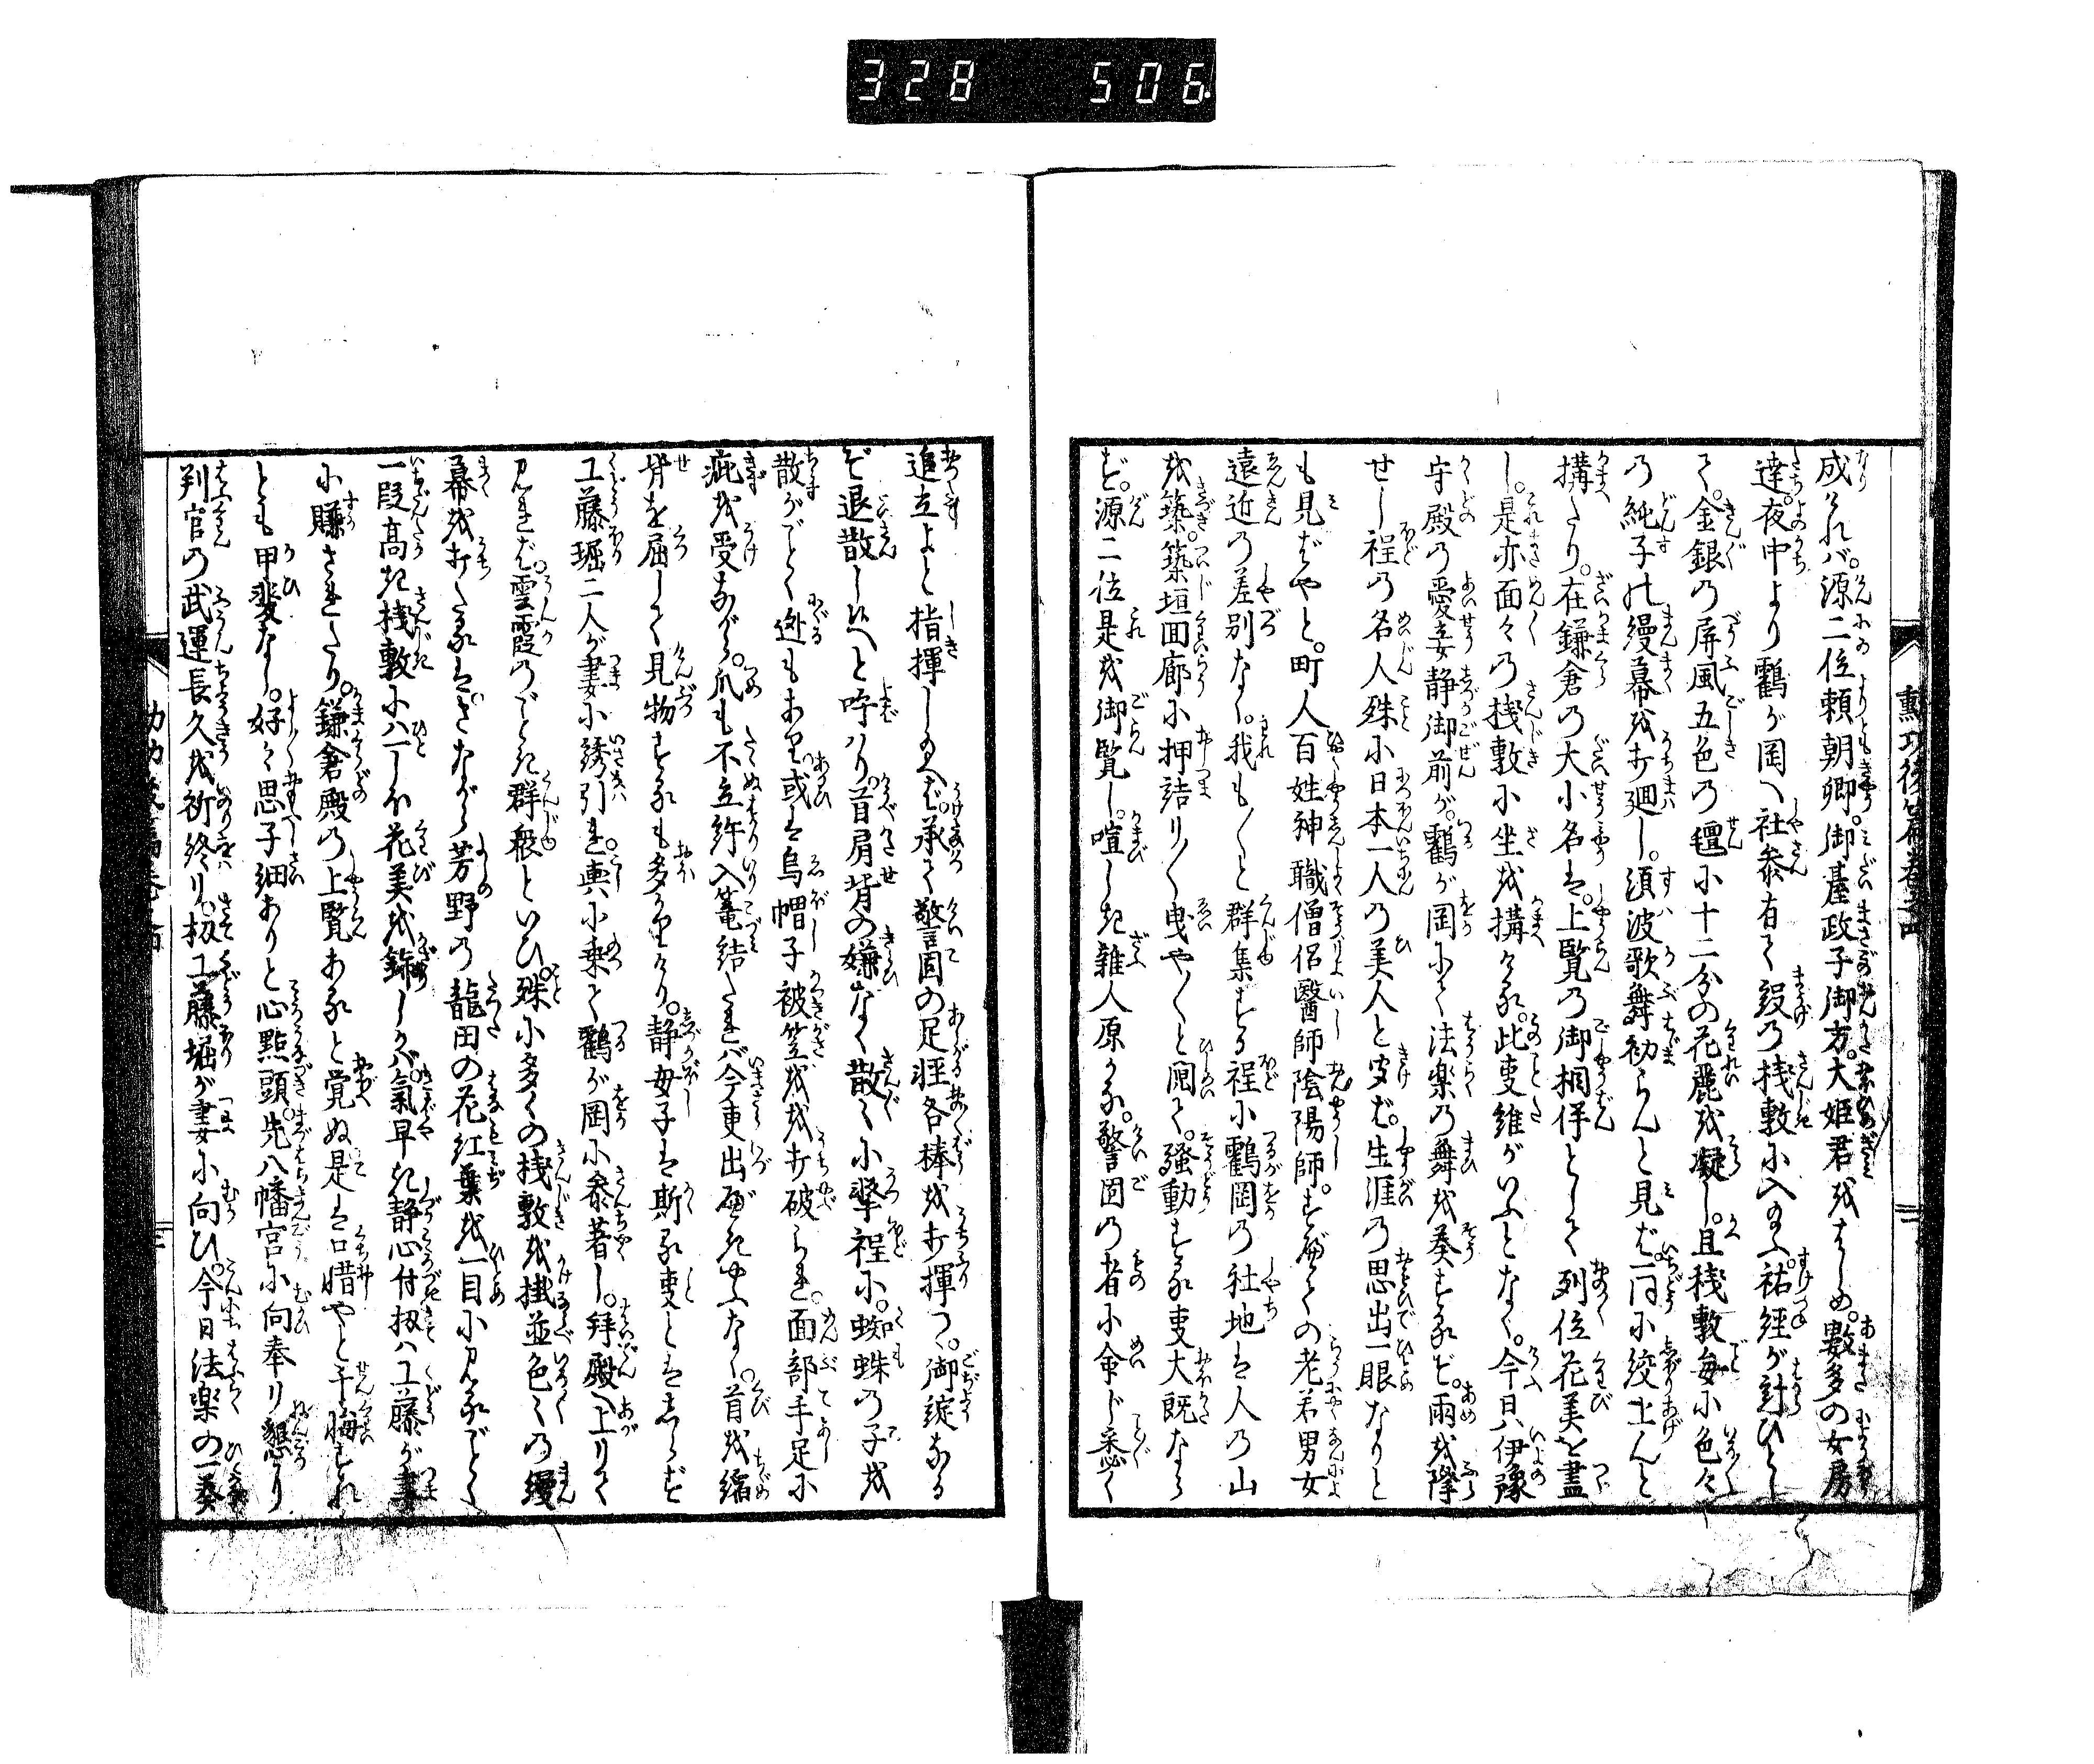 328 506
勲功後篇巻之四
成ければ。源二位頼朝卿。御䑓政子御方。大姫君をはじめ。數多の女房
達。夜中より鶴が岡へ社参有て設の棧敷に入給ふ。祐経が計ひとし
て。金銀の屏風五色の氊に十二分の花麗を凝し。且棧敷毎に色々
の純子の縵幕を打廻し。須波歌舞初らんと見ば一同に絞上んと
搆たり。在鎌倉の大小名は。上覧の御相伴として列位花美を盡
し。是亦面々の棧敷に坐を搆ける。此事維がいふとなく。今日ハ伊豫
守殿の愛妾静御前が。鶴が岡にて法楽の舞を奏するぞ。雨を降
せし程の名人殊に日本一人の美人と聞けば。生涯の思出一眼なりと
も見ばやと。町人百姓神職僧侶醫師陰陽師。すべての老若男女
遠近の差別なく。我も〱と群集する程に鶴岡の社地は人の山
を築。築垣回廊に押詰り〱曳や〱と鬩て。騒動する事大既なら
ず。源二位是を御覧し。喧しき雑人原かな。警固の者に命じ悉く
追立よと指揮し給へば。承て警固の足軽各棒を打揮つ。御錠なる
ぞ退散しはへと呼はり。首肩背の嫌なく散々に撃程に。蜘蛛の子を
散がごとく迯もあり。或は烏帽子被笠をを打破られ。面部手足に
疵を受ながら。爪も不立許入篭結たれバ今更出べきやふなく。首を縮
背を屈して見物するも多かりけり。静母子は斯る事とはしらず
工藤堀二人が妻に誘引れ輿に乗て鶴が岡に参着し。拜殿へ上りて
見れば。雲霞のごとき群衆といひ。殊に多くの棧敷を掛並色々の縵
幕を打たるはさながら芳野の龍田の花紅葉を一目に見るごとく
一段高き棧敷にハ一しほ花美を錺しかバ氣早き静心付扨ハ工藤が妻
に賺されたり。鎌倉殿の上覧あると覚ぬ是は口惜やと千悔すれ
とも甲斐なし。好々思子細ありと心點頭。先八幡宮に向奉り懇り
判官の武運長久を祈終り。扨工藤堀が妻に向ひ。今日法楽の一奏